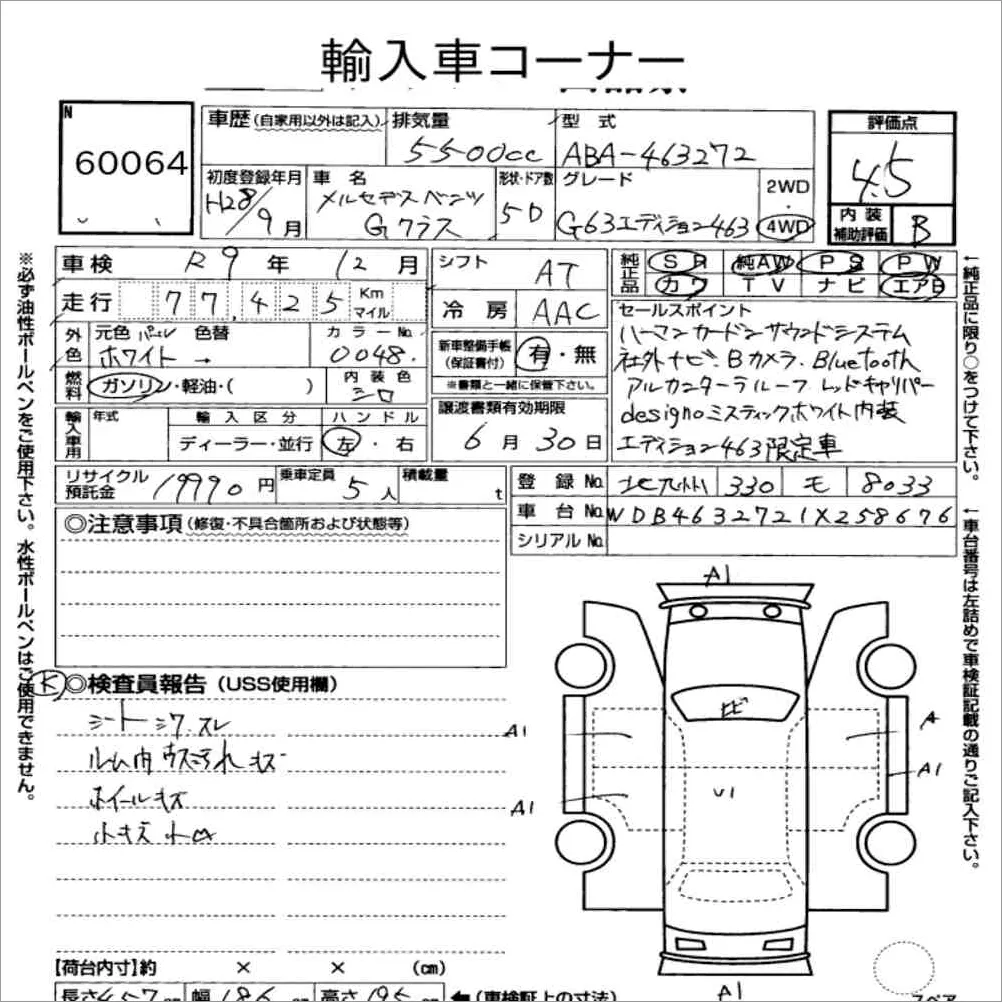 輸入車コーナー
N
60064
車歴(自家用以外は記入) 排気量 型式
5500cc ABA-463272
初度登録年月 車名 形状・ドア数 グレード
H28/9月 メルセデスベンツ Gクラス 5D G63エディション463 2WD・4WD
評価点
4.5
内装補助評価 B
車検 R9年12月
走行 77,425 Km マイル
外色 元色 パール ホワイト 色替 → カラーNo. 0048.
燃料 ガソリン・軽油・( ) 内装色 シロ
輸入車用 年式 輸入区分 ディーラー・並行 ハンドル 左・右
シフト AT
冷房 AAC
新車整備手帳(保証書付) 有・無
※書類と一緒に保管下さい。
譲渡書類有効期限
6月30日
純正品 SR 純AW PS PW
カワ TV ナビ エアB
セールスポイント
ハーマンカードンサウンドシステム
社外ナビ.Bカメラ.Bluetooth
アルカンターラルーフ レッドキャリパー
designoミスティックホワイト内装
エディション463限定車
リサイクル預託金 19990円 乗車定員 5人 積載量 t
登録No. 330 モ 8033
車台No. WDB4632721X258676
シリアルNo.
◎注意事項(修復・不具合箇所および状態等)
K ◎検査員報告(USS使用欄)
シートシワ.スレ
ルーム内ウスヨゴれキズ
ホイールキズ
小キズ
A1
A1
A1
A
A1
U1
A1
【荷台内寸】約 × × (cm)
長さ457 幅186 cm 高さ195 ←(車検証上の寸法)
スペア
※必ず油性ボールペンをご使用下さい。水性ボールペンはご使用できません。
↑純正品に限り○をつけて下さい。
↑車台番号は左詰めで車検証記載の通りご記入下さい。